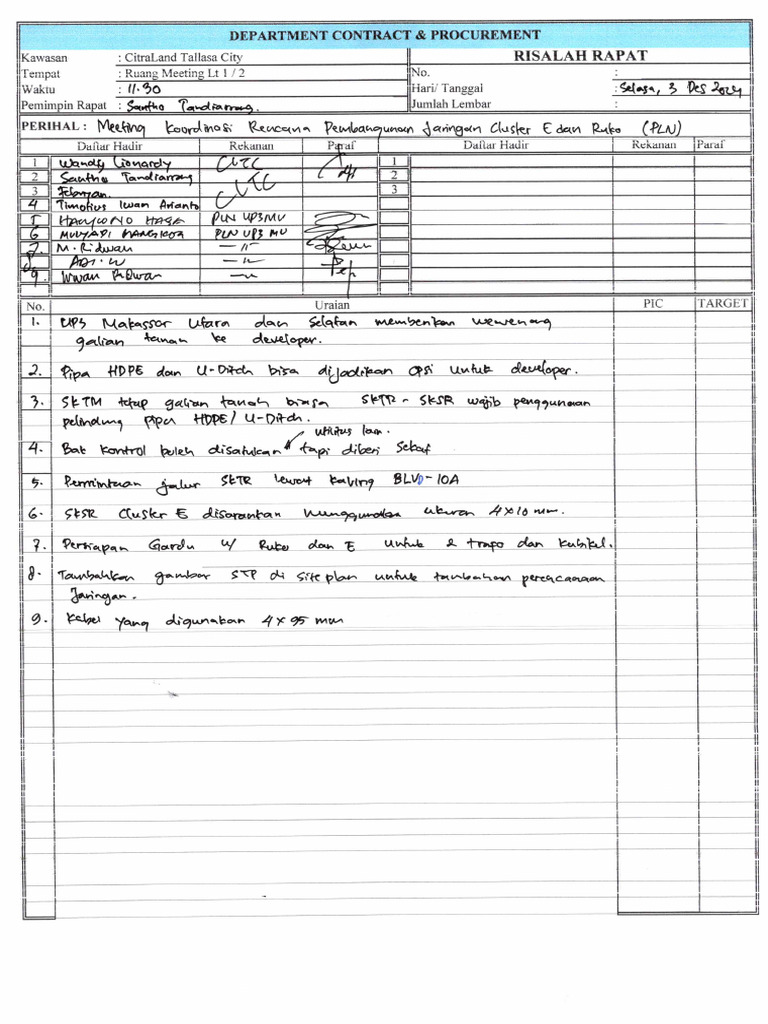 DEPARTMENT CONTRACT & PROCUREMENT
Kawasan : CitraLand Tallasa City
RISALAH RAPAT
Tempat : Ruang Meeting Lt 1 / 2
No. :
Waktu : 11.30
Hari/ Tanggal : Selasa, 3 Des 2024
Pemimpin Rapat : Santho Tandiarrang.
Jumlah Lembar :
PERIHAL : Meeting Koordinasi Rencana Pembangunan Jaringan Cluster E dan Ruko (PLN)
Daftar Hadir Rekanan Paraf Daftar Hadir Rekanan Paraf
1 Wandy Lionardy CLTC 1
2 Santho Tandiarrang 2
3 CLTC 3
4 Timotius Iwan Arianto
PLN UP3 MU
6 PLN UP3 MU
7. M. Ridwan — 11 —
ADI.W — 11 —
9. Iwan Ridwan — 11 —
No. Uraian PIC TARGET
1. UP3 Makassar Utara dan Selatan memberikan wewenang
galian tanah ke developer.
2. Pipa HDPE dan U-Ditch bisa dijadikan opsi untuk developer.
3. SKTM tetap galian tanah biasa SKTR - SKSR wajib penggunaan
pelindung pipa HDPE / U-Ditch.
utilitas lain.
4. Bak kontrol boleh disatukan tapi diberi Sekat
5. Permintaan jalur SKTR lewat kavling BLVD-10A
6. SKSR Cluster E disarankan menggunakan ukuran 4x10 mm.
7. Persiapan Gardu u/ Ruko dan E untuk 2 trafo dan kubikel.
8. Tambahkan gambar STP di siteplan untuk tambahan perencanaan
Jaringan.
9. Kabel yang digunakan 4x95 mm